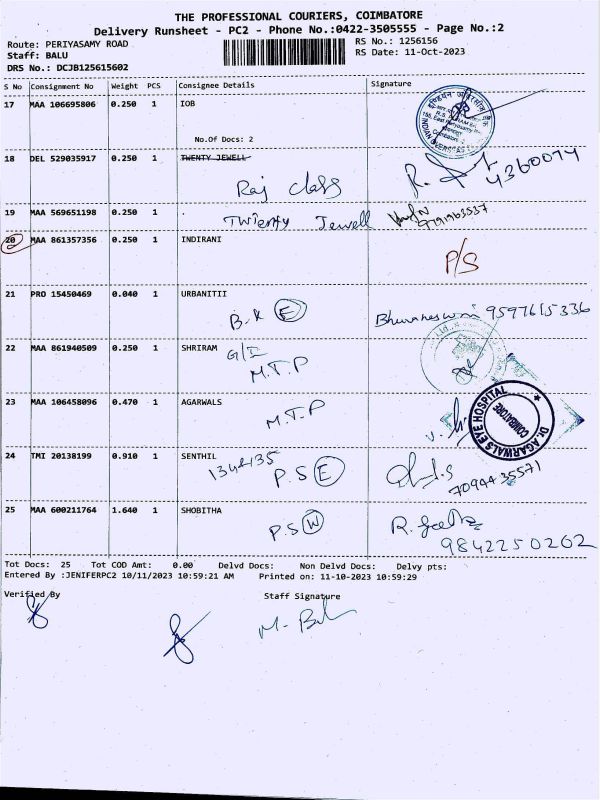 THE PROFESSIONAL COURIERS, COIMBATORE
Delivery Runsheet - PC2 - Phone No.:0422-3505555 - Page No.:2
Route: PERIYASAMY ROAD
Staff: BALU
DRS No.: DCJB125615602
RS No.: 1256156
RS Date: 11-Oct-2023
S No Consignment No Weight PCS Consignee Details Signature
17 MAA 106695806 0.250 1 IOB
No.Of Docs: 2
18 DEL 529035917 0.250 1 TWENTY JEWELL
Raj class
4360074
19 MAA 569651198 0.250 1 .
Twienty Jewell
9791963537
20 MAA 861357356 0.250 1 INDIRANI
P/S
21 PRO 15450469 0.040 1 URBANITII
B.K E
Bhuvaneswari 9597615336
22 MAA 861940509 0.250 1 SHRIRAM
G/I
M.T.P
23 MAA 106458096 0.470 1 AGARWALS
M.T.P
DR. AGARWALS EYE HOSPITAL
COIMBATORE
24 TMI 20138199 0.910 1 SENTHIL
P.S E
7094435571
25 MAA 600211764 1.640 1 SHOBITHA
P.S W
R. Geetha
9842250262
Tot Docs: 25 Tot COD Amt: 0.00 Delvd Docs: Non Delvd Docs: Delvy pts:
Entered By :JENIFERPC2 10/11/2023 10:59:21 AM Printed on: 11-10-2023 10:59:29
Verified By Staff Signature